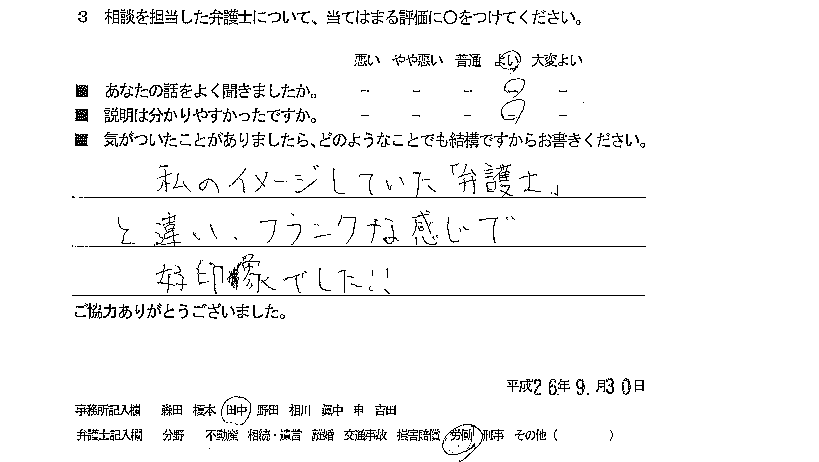 3 相談を担当した弁護士について、当てはまる評価に○をつけてください。
悪い やや悪い 普通 よい 大変よい
■ あなたの話をよく聞きましたか。 - - - - -
■ 説明は分かりやすかったですか。 - - - - -
■ 気がついたことがありましたら、どのようなことでも結構ですからお書きください。
私のイメージしていた「弁護士」
と違い、フランクな感じで
好印象でした!!
ご協力ありがとうございました。
平成26年9.月30日
事務所記入欄 森田 榎本 田中 野田 相川 眞中 申 吉田
弁護士記入欄 分野 不動産 相続・遺言 離婚 交通事故 損害賠償 労働 刑事 その他 ( )